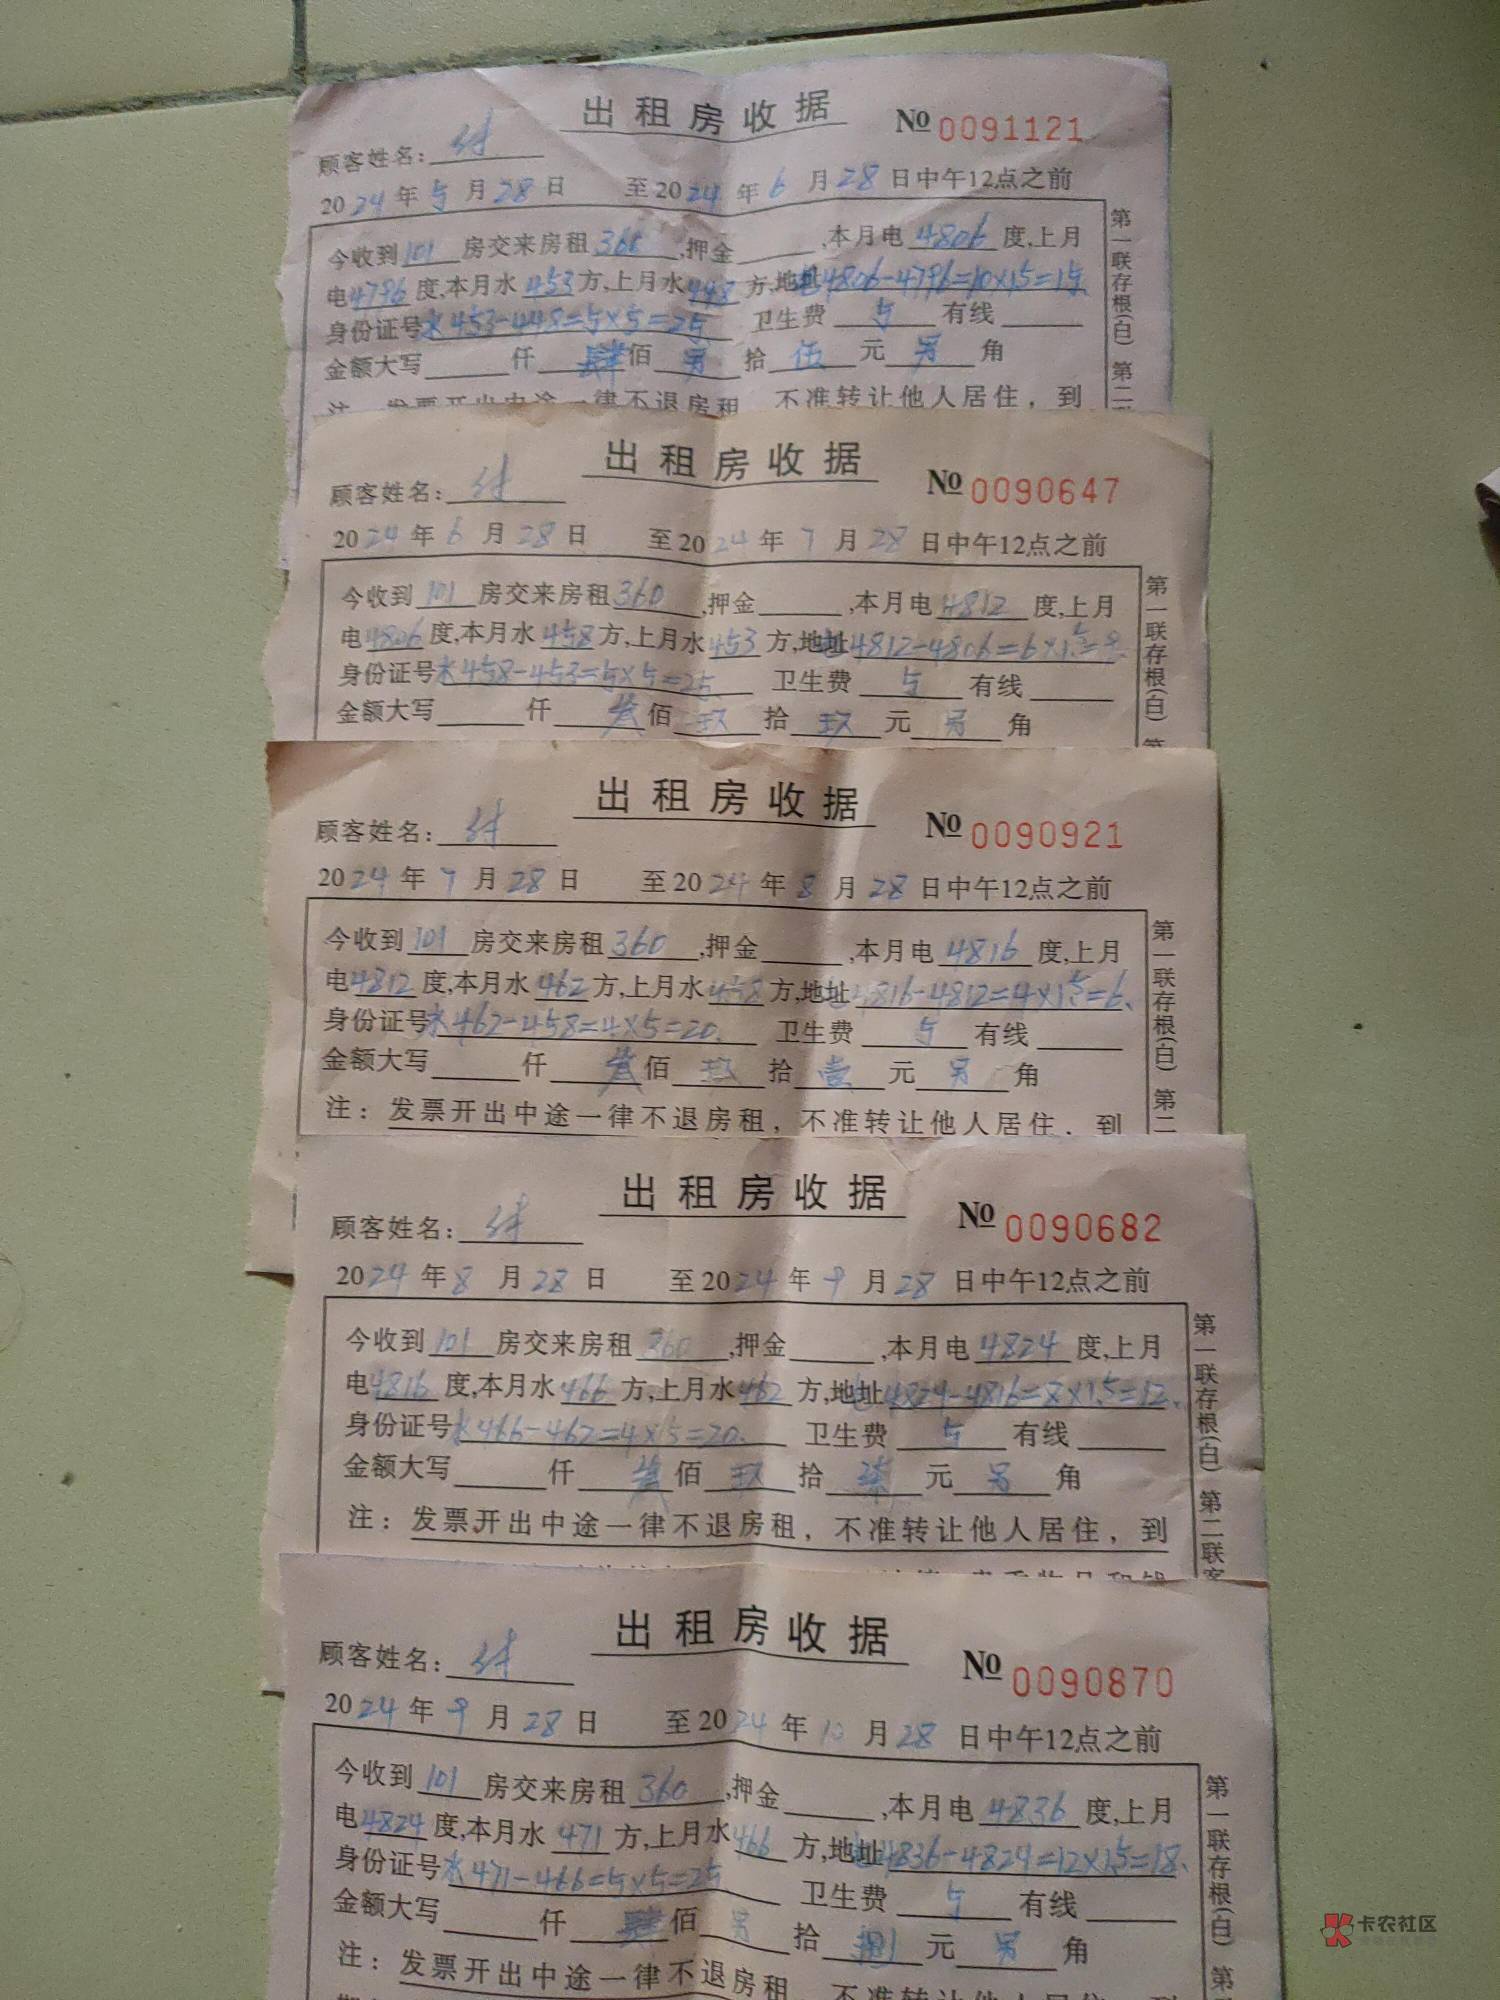 出租房收据 № 0091121
顾客姓名: 付
2024年5月28日 至2024年6月28日中午12点之前
今收到 101 房交来房租 360 ,押金 ,本月电 4806 度,上月
电4796度,本月水 453方,上月水448方,地址电4806-4796=10×1.5=15.
身份证号水453-448=5×5=25. 卫生费 5 有线
金额大写 仟 肆佰 另 拾 伍 元 另 角
注: 发票开出中途一律不退房租, 不准转让他人居住, 到
第一联存根(白) 第二
出租房收据 № 0090647
顾客姓名: 付
2024年6月28日 至2024年7月28日中午12点之前
今收到 101 房交来房租 360 ,押金 ,本月电 4812 度,上月
电4806度,本月水 458方,上月水 453方,地址电4812-4806=6×1.5=9.
身份证号水458-453=5×5=25. 卫生费 5 有线
金额大写 仟 叁佰 玖 拾 玖 元 另 角
第一联存根(白) 第
出租房收据 № 0090921
顾客姓名: 付
2024年7月28日 至2024年8月28日中午12点之前
今收到 101 房交来房租 360 ,押金 ,本月电 4816 度,上月
电4812度,本月水 462方,上月水458方,地址电4816-4812=4×1.5=6.
身份证号水462-458=4×5=20. 卫生费 5 有线
金额大写 仟 叁佰 玖 拾 壹 元 另 角
注: 发票开出中途一律不退房租, 不准转让他人居住, 到
第一联存根(白) 第二
出租房收据 № 0090682
顾客姓名: 付
2024年8月28日 至2024年9月28日中午12点之前
今收到 101 房交来房租 360 ,押金 ,本月电 4824 度,上月
电4816度,本月水 466方,上月水462方,地址电4824-4816=8×1.5=12.
身份证号水466-462=4×5=20. 卫生费 5 有线
金额大写 仟 叁佰 玖 拾 柒 元 另 角
注: 发票开出中途一律不退房租, 不准转让他人居住, 到
第一联存根(白) 第二联客
出租房收据 № 0090870
顾客姓名: 付
2024年9月28日 至2024年10月28日中午12点之前
今收到 101 房交来房租 360 ,押金 ,本月电 4836 度,上月
电4824度,本月水 471方,上月水466方,地址电4836-4824=12×1.5=18.
身份证号水471-466=5×5=25 卫生费 5 有线
金额大写 仟 肆佰 另 拾 捌 元 另 角
注: 发票开出中途一律不退房租, 不准转让他人居住, 到
第一联存根(白) 第
卡农社区